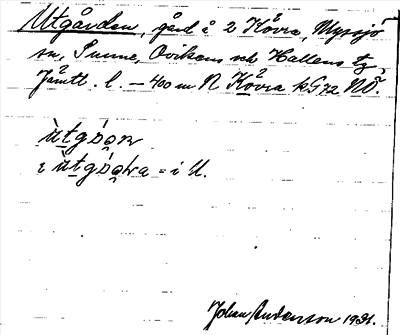 Utgården, gård å 2 Kövra, Myssjö
sn, Sunne, Ovikens och Hallens tg,
Jämtl. l. – 400 m N Kövra kG72 NÖ.
i = i U.
Johan Anderson 1931.